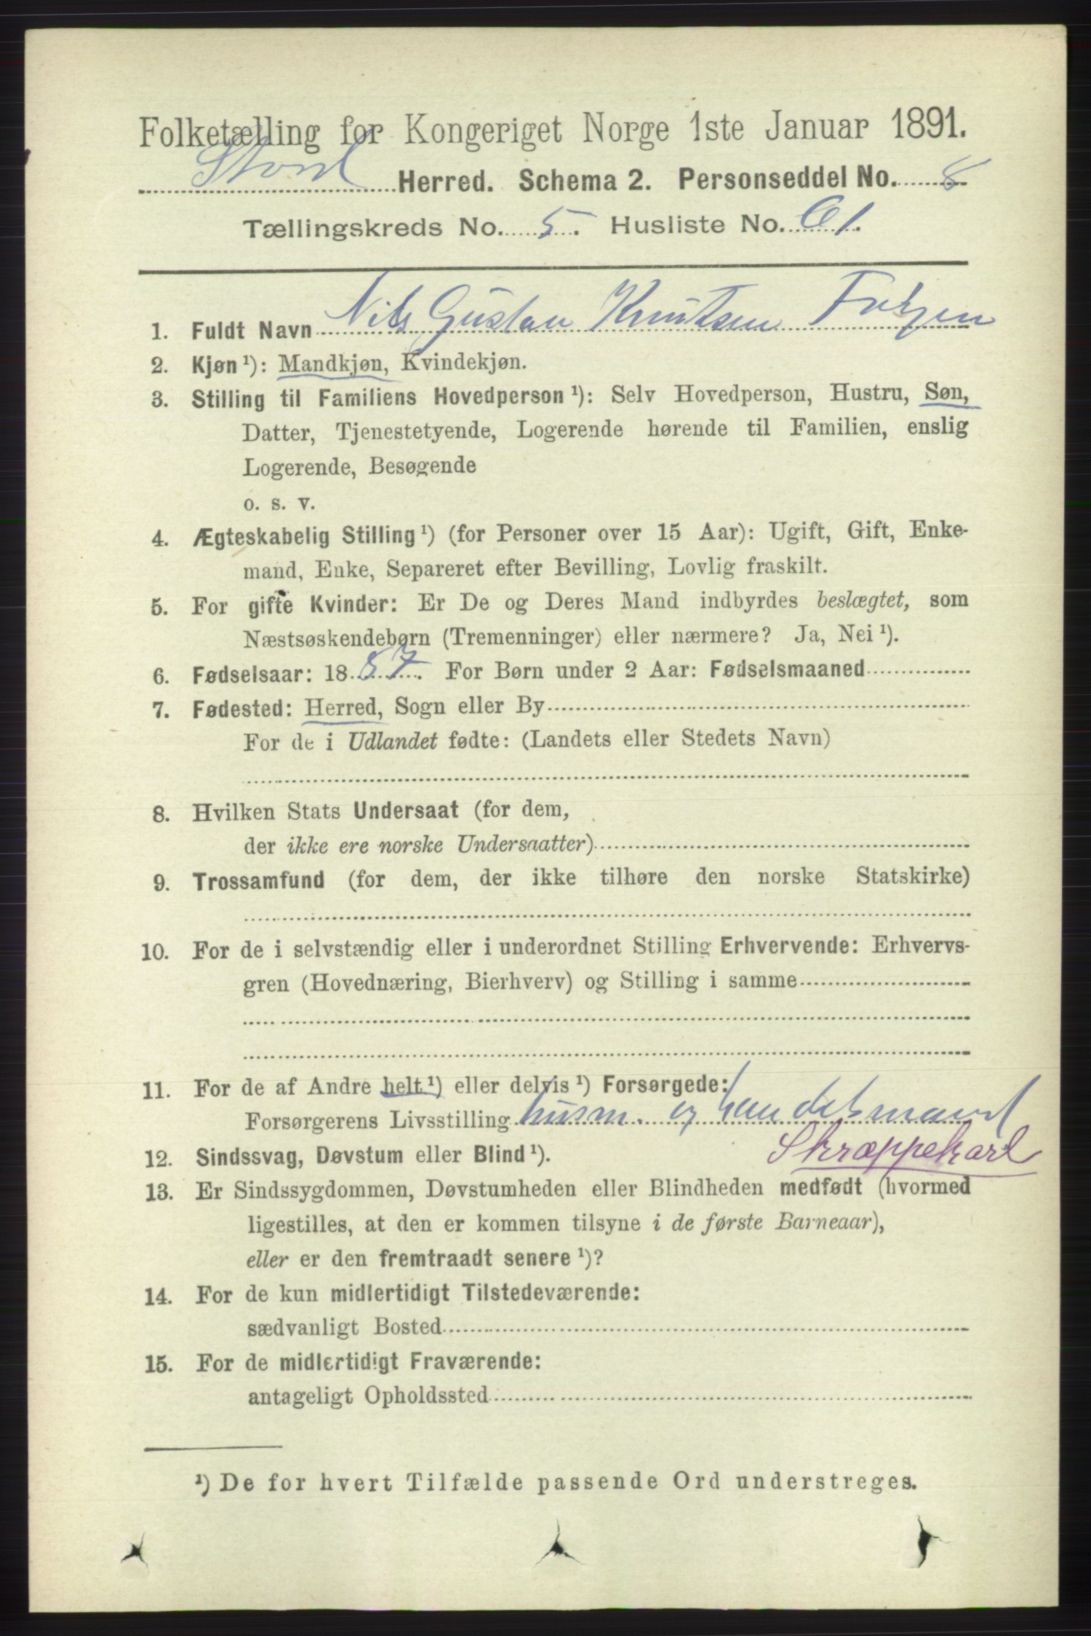 Folketælling for Kongeriget Norge 1ste Januar 1891.
Stord Herred. Schema 2. Personseddel No. 8
Tællingskreds No. 5. Husliste No. 61.
1. Fuldt Navn Nils Gustav Knutsen
2. Kjøn ¹): Mandkjøn, Kvindekjøn.
3. Stilling til Familiens Hovedperson ¹): Selv Hovedperson, Hustru, Søn,
Datter, Tjenestetyende, Logerende hørende til Familien, enslig
Logerende, Besøgende
o. s. v.
4. Ægteskabelig Stilling ¹) (for Personer over 15 Aar): Ugift, Gift, Enke-
mand, Enke, Separeret efter Bevilling, Lovlig fraskilt.
5. For gifte Kvinder: Er De og Deres Mand indbyrdes beslægtet, som
Næstsøskendebørn (Tremenninger) eller nærmere? Ja, Nei ¹).
6. Fødselsaar: 1887. For Børn under 2 Aar: Fødselsmaaned
7. Fødested: Herred, Sogn eller By
For de i Udlandet fødte: (Landets eller Stedets Navn)
8. Hvilken Stats Undersaat (for dem,
der ikke ere norske Undersaatter)
9. Trossamfund (for dem, der ikke tilhøre den norske Statskirke)
10. For de i selvstændig eller i underordnet Stilling Erhvervende: Erhvervs-
gren (Hovednæring, Bierhverv) og Stilling i samme
11. For de af Andre helt ¹) eller delvis ¹) Forsørgede:
Forsørgerens Livsstilling husm. og handelsmand
Skræppekarl
12. Sindssvag, Døvstum eller Blind ¹).
13. Er Sindssygdommen, Døvstumheden eller Blindheden medfødt (hvormed
ligestilles, at den er kommen tilsyne i de første Barneaar),
eller er den fremtraadt senere ¹)?
14. For de kun midlertidigt Tilstedeværende:
sædvanligt Bosted
15. For de midlertidigt Fraværende:
antageligt Opholdssted
¹) De for hvert Tilfælde passende Ord understreges.